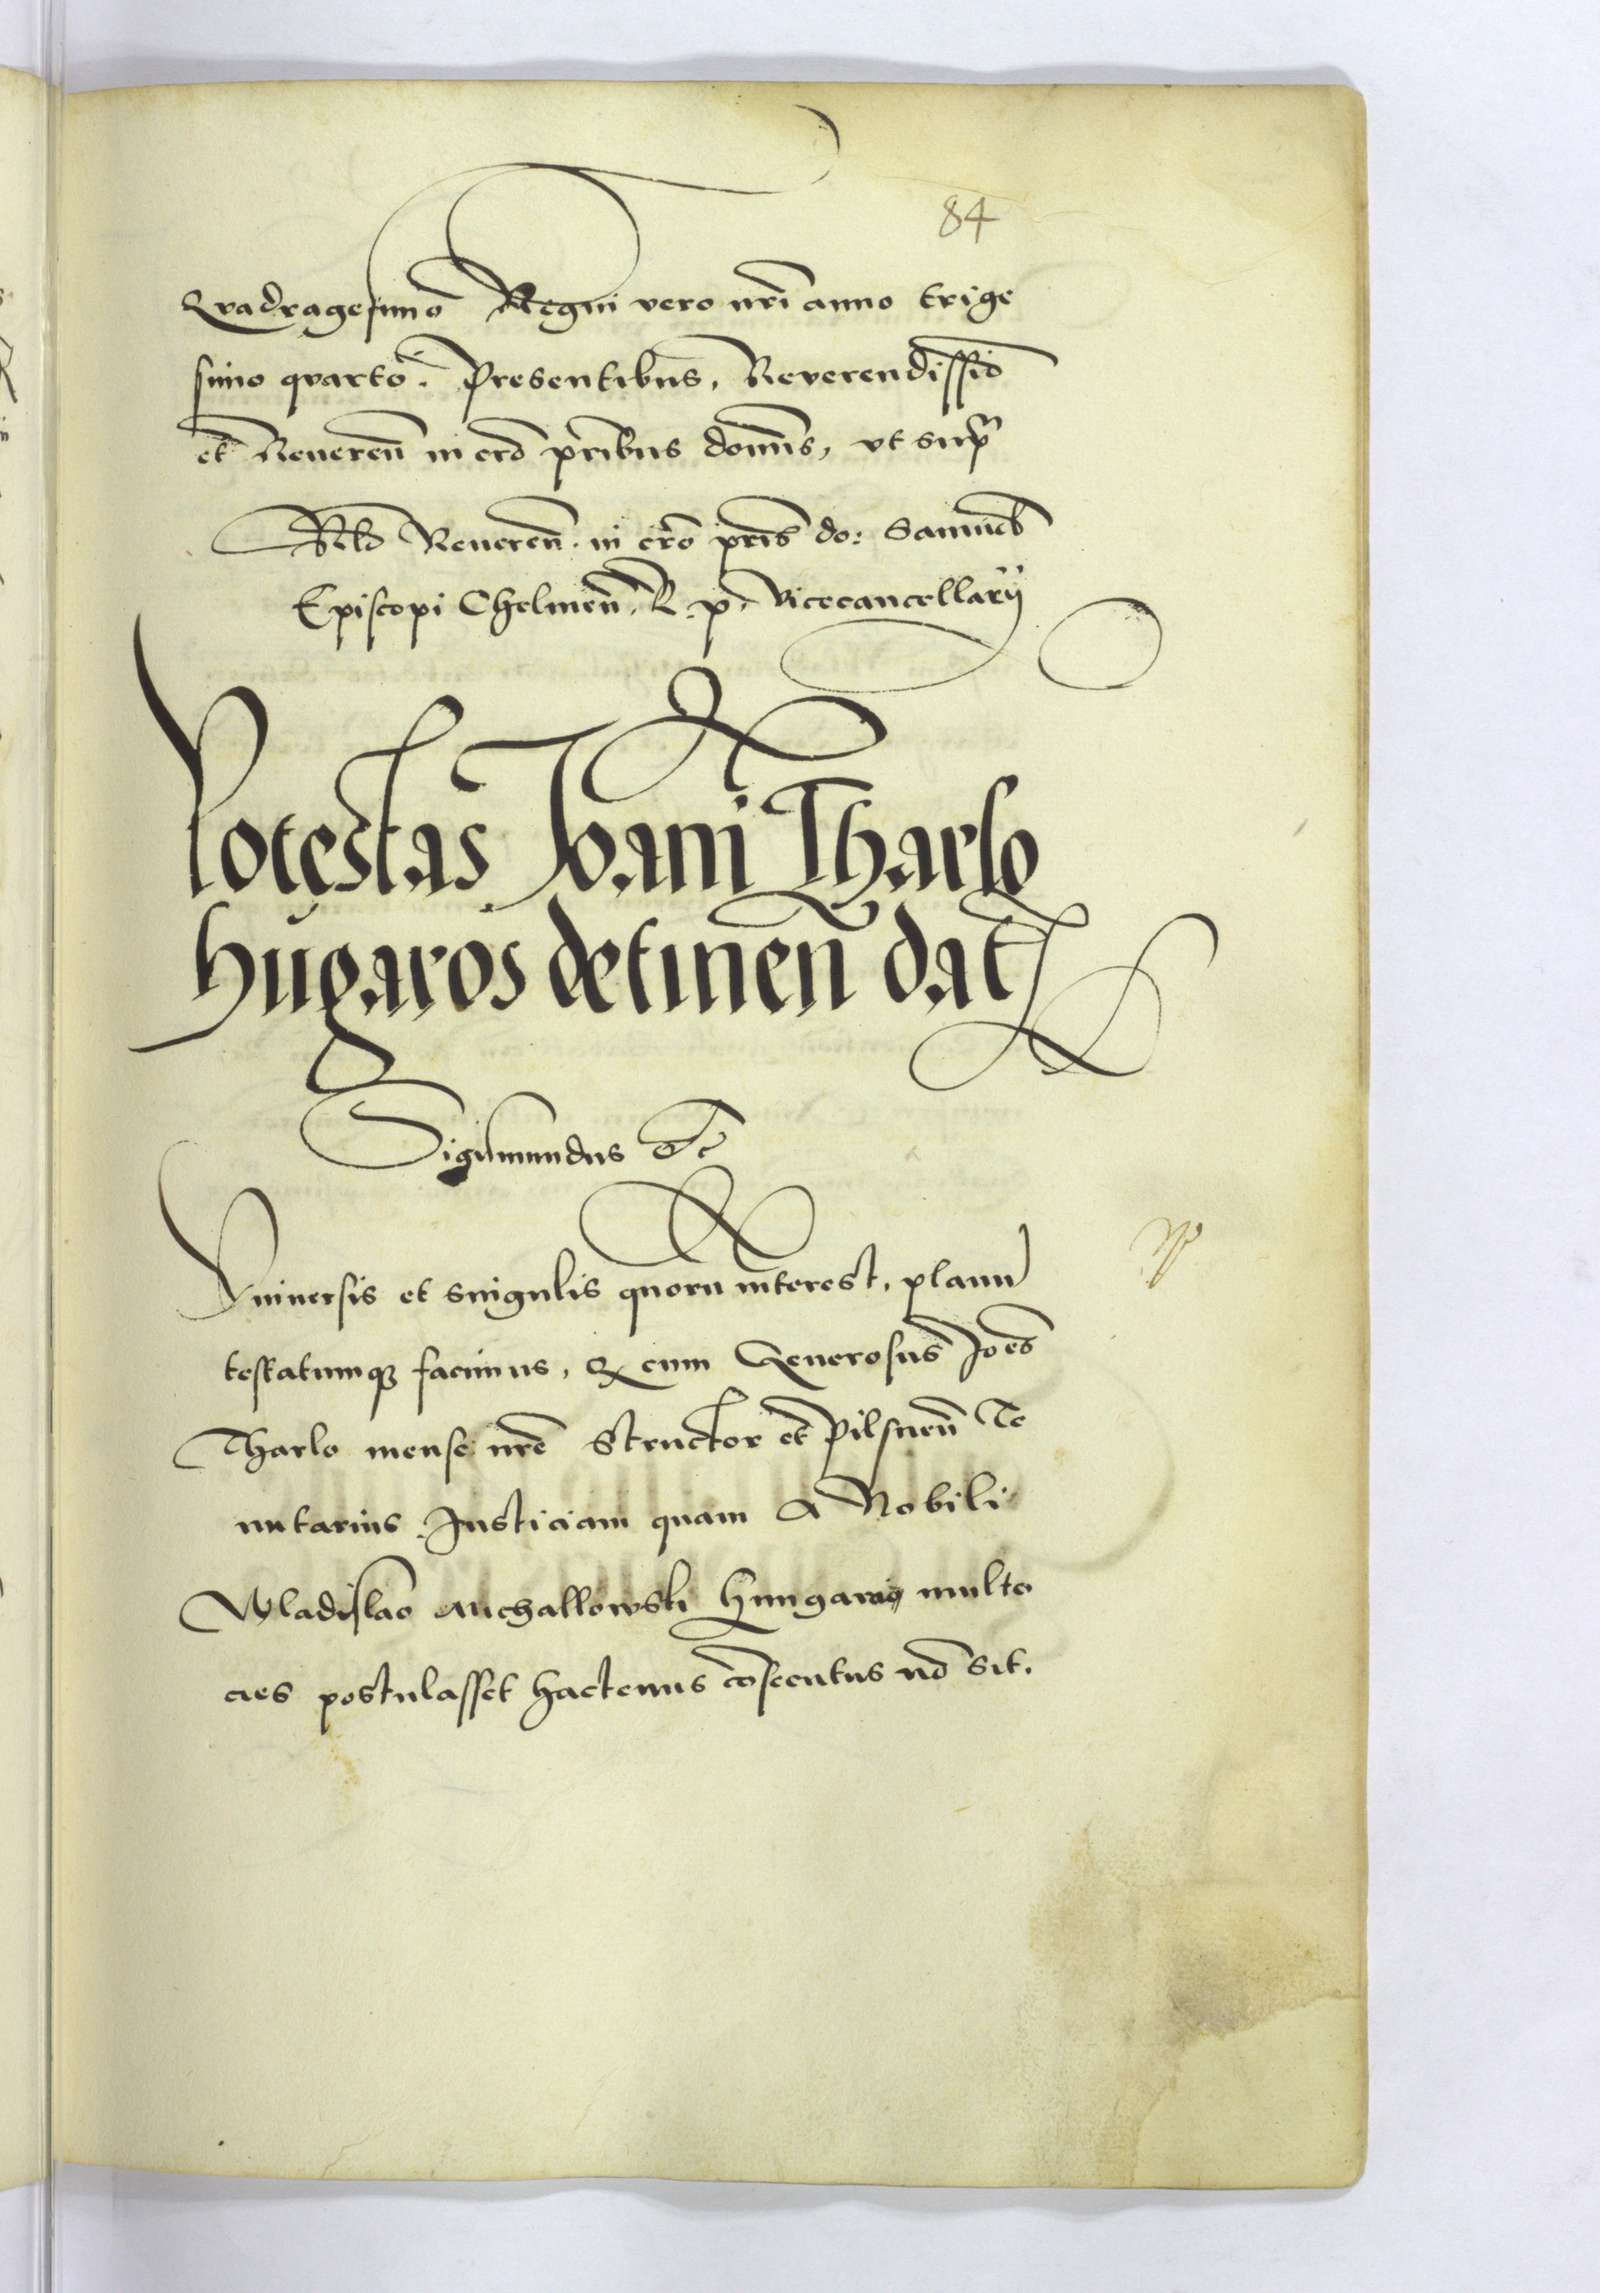 84
Qvadragesimo Regni vero nr̃i anno trige
simo qvarto. Presentibus, Reverendissīo
et Reveren̄ in crō pr̃ibus domīs, vt sup̃
Rłō Reueren̄. in crō pr̃is do: Samuelis
Episcopi Chelmen̄, R. p. Vicecancellarij
Potestas Joani Tharlo
hūgaros detinen̄ dat
Sigismundus Etc
Vniuersis et singulis quorū interest, planū
testatumqȝ facimus, Qz cum Generosus Joēs
Tharlo mense nr̃e Structor et Pilsnen̄ Te
nutarius Justiciam quam A Nobili
Wladislao Michallowski Hungaro multo
cies postulasset hactenus cōsecutus nō sit.